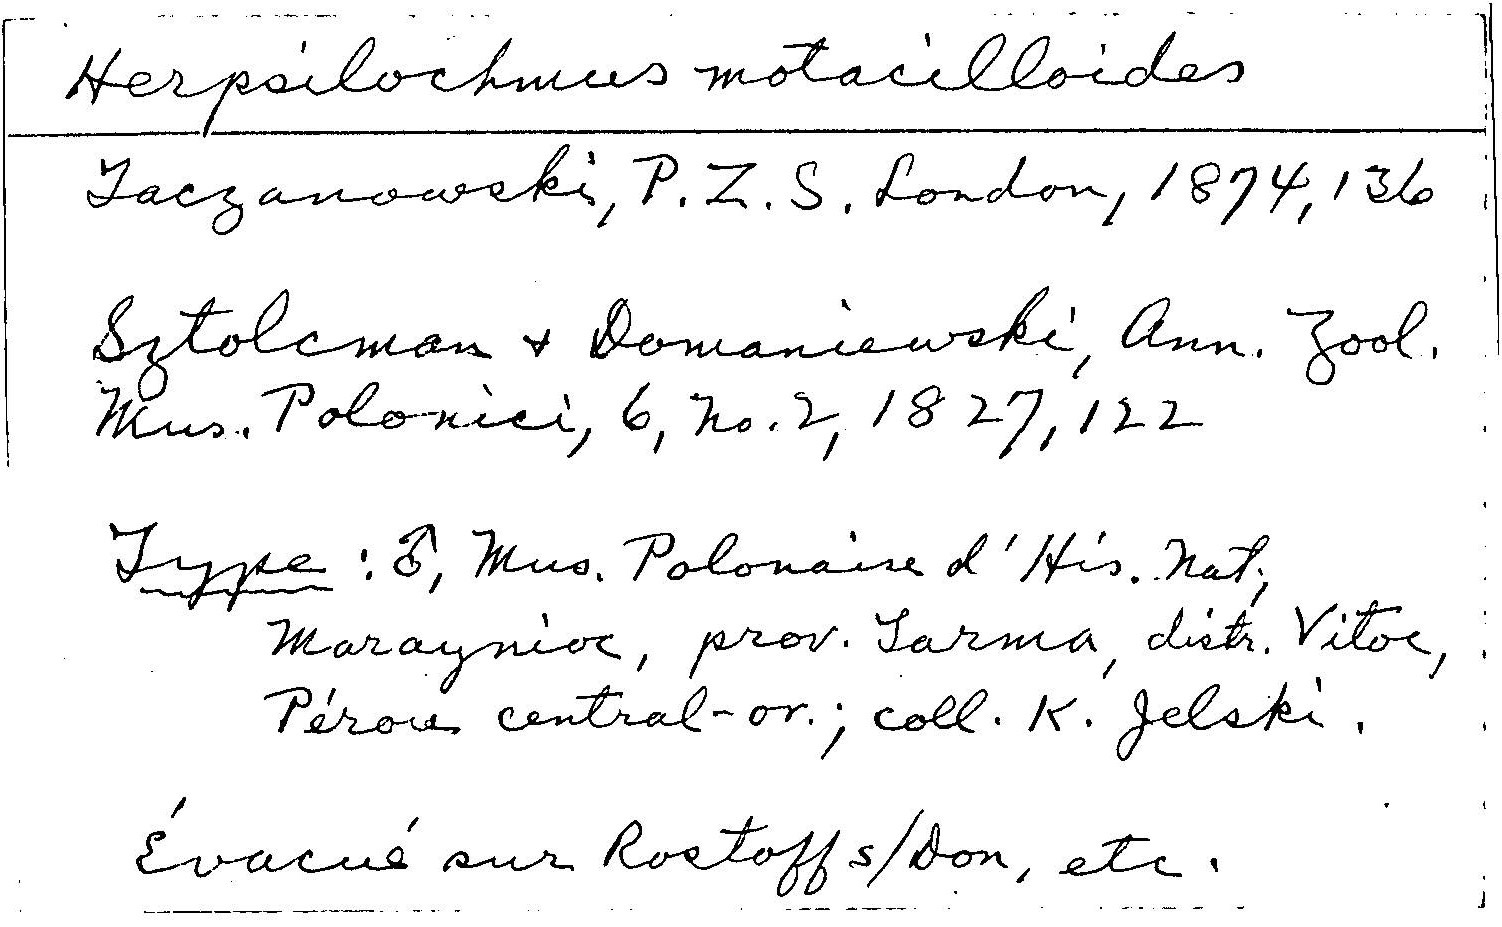 Herpsilochmus motacilloides
Taczanowski, P. Z. S. London, 1874, 136
Sztolcman + Domaniewski, Ann. Zool.
Mus. Polonici, 6, No. 2, 1827, 122
Type : ♂, Mus. Polonaise d' His. Nat.,
Maraynioc, prov. Tarma, distr. Vitoc,
Pérou central-or.; coll. K. Jelski.
Évacué sur Rostoff s/Don, etc.